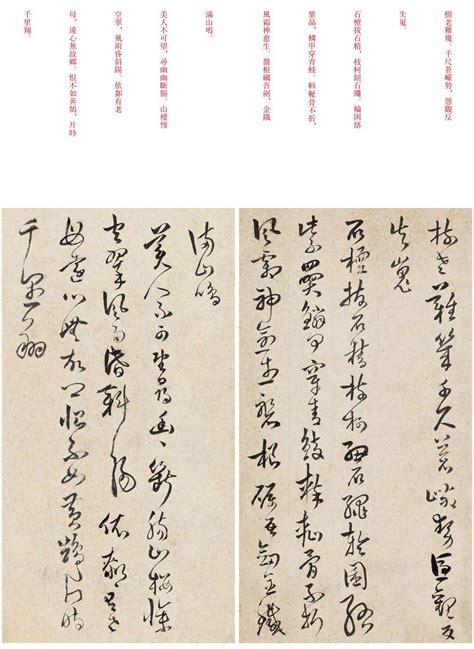 樹老難幾、千尺蒼巖勢、憑觀反
失嵬。
石檀拔石精,枝柯紐石繩。輪囷絡
紫晶,鱗甲穿青鮫。骨不折,
風霜神愈生。盤根礪吾劍,金鐵
滿山鳴。
美人不可望,尋幽幽斷腸。山櫻慘
空翠,風雨昏斜陽。依鄰有老
母,遠心無故鄉。恨不如黃鵠,片時
千里翔。
樹老難幾千尺蒼巖勢憑觀反
失嵬
石檀拔石精枝柯紐石繩輪囷絡
紫晶鱗甲穿青骨不折
風霜神愈生盤根礪吾劍金鐵
滿山鳴
美人不可望尋幽幽斷腸山櫻慘
空翠風雨昏斜陽依鄰有老
母遠心無故鄉恨不如黃鵠片時
千里翔